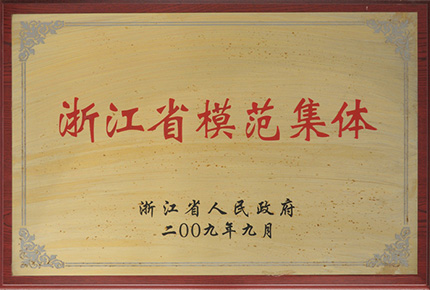 浙江省模范集体
浙江省人民政府
二00九年九月